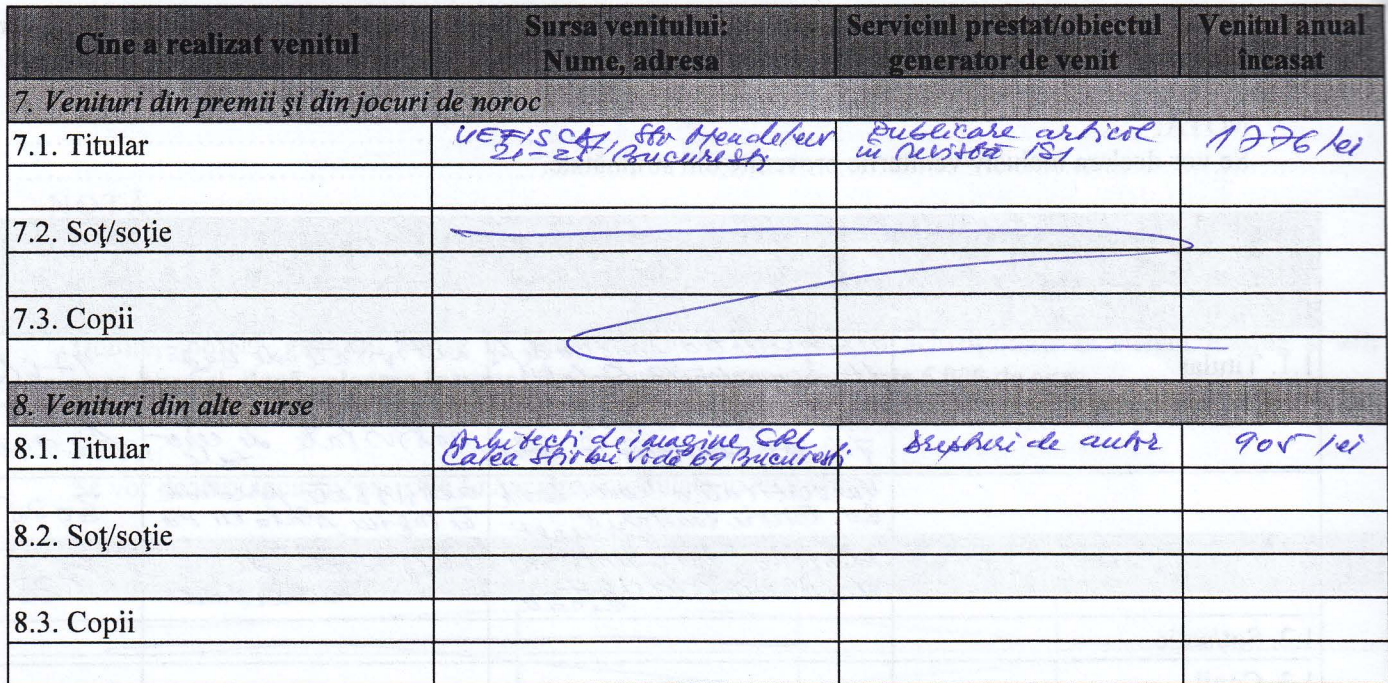 Cine a realizat venitul
Sursa venitului:
Nume, adresa
Serviciul prestat/obiectul
generator de venit
Venitul anual
încasat
7. Venituri din premii şi din jocuri de noroc
7.1. Titular
UEFISCDI, Str Mendeleev
21-25, Bucuresti
Publicare articol
în revistă ISI
1776 lei
7.2. Soţ/soţie
7.3. Copii
8. Venituri din alte surse
8.1. Titular
Arhitecti de imagine SRL
Calea Stirbei Vodă 69 Bucuresti
Drepturi de autor
905 lei
8.2. Soţ/soţie
8.3. Copii